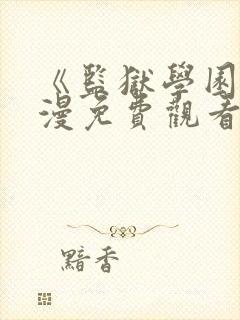 《監獄學園
漫免費觀看
黯香